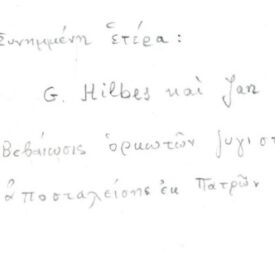 Συνημμένη ἑτέρα:
G. Hilbes καὶ Jan
Βεβαίωσις ὁρκωτῶν ζυγιστ
ἀποσταλείσης ἐκ Πατρῶν